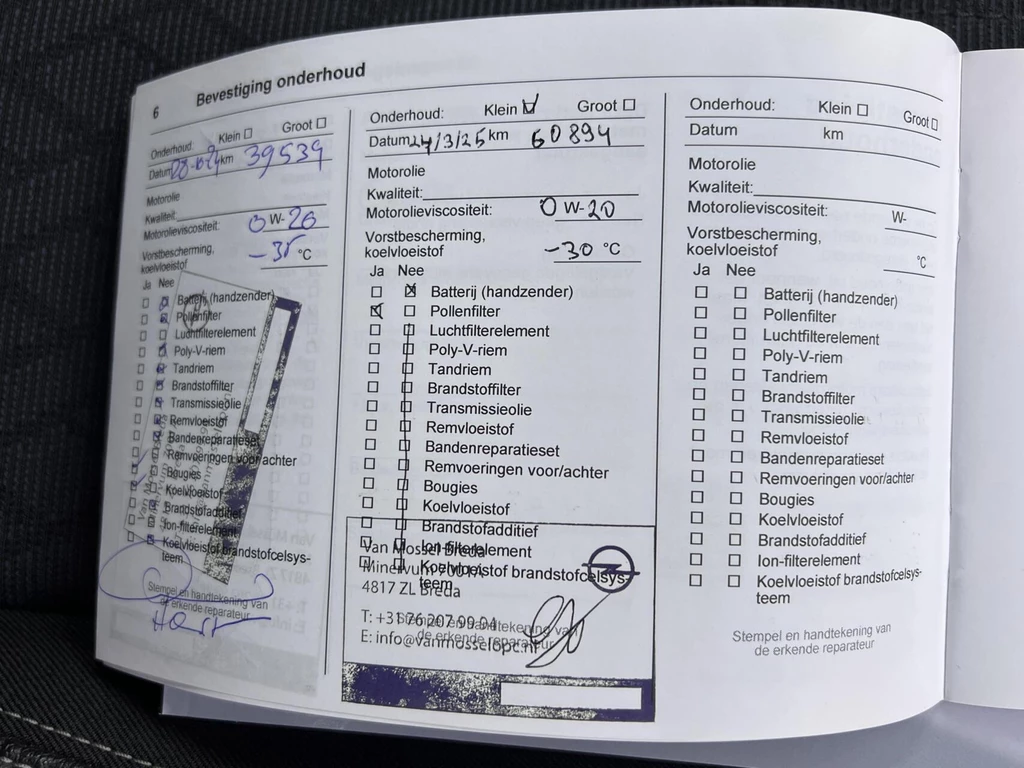 6 Bevestiging onderhoud
Onderhoud: Klein ☐ Groot ☐
Datum km 39539
Motorolie
Kwaliteit:
Motorolieviscositeit: 0 W-20
Vorstbescherming,
koelvloeistof -35 °C
Ja Nee
Batterij (handzender)
Pollenfilter
Luchtfilterelement
Poly-V-riem
Tandriem
Brandstoffilter
Transmissieolie
Remvloeistof
Bandenreparatieset
Remvoeringen voor/achter
Bougies
Koelvloeistof
Brandstofadditief
Ion-filterelement
Koelvloeistof brandstofcelsys-
teem
Stempel en handtekening van
de erkende reparateur
Onderhoud: Klein ☑ Groot ☐
Datum 24/3/25 km 60894
Motorolie
Kwaliteit:
Motorolieviscositeit: 0 W-20
Vorstbescherming,
koelvloeistof -30 °C
Ja Nee
Batterij (handzender)
Pollenfilter
Luchtfilterelement
Poly-V-riem
Tandriem
Brandstoffilter
Transmissieolie
Remvloeistof
Bandenreparatieset
Remvoeringen voor/achter
Bougies
Koelvloeistof
Brandstofadditief
Ion-filterelement
Koelvloeistof brandstofcelsys-
teem
Van Mossel Breda
4817 ZL Breda
T: +31 76 207 99 04
E: info@vanmosselopc.nl
Stempel en handtekening van
de erkende reparateur
Onderhoud: Klein ☐ Groot ☐
Datum km
Motorolie
Kwaliteit:
Motorolieviscositeit: W-
Vorstbescherming,
koelvloeistof °C
Ja Nee
Batterij (handzender)
Pollenfilter
Luchtfilterelement
Poly-V-riem
Tandriem
Brandstoffilter
Transmissieolie
Remvloeistof
Bandenreparatieset
Remvoeringen voor/achter
Bougies
Koelvloeistof
Brandstofadditief
Ion-filterelement
Koelvloeistof brandstofcelsys-
teem
Stempel en handtekening van
de erkende reparateur